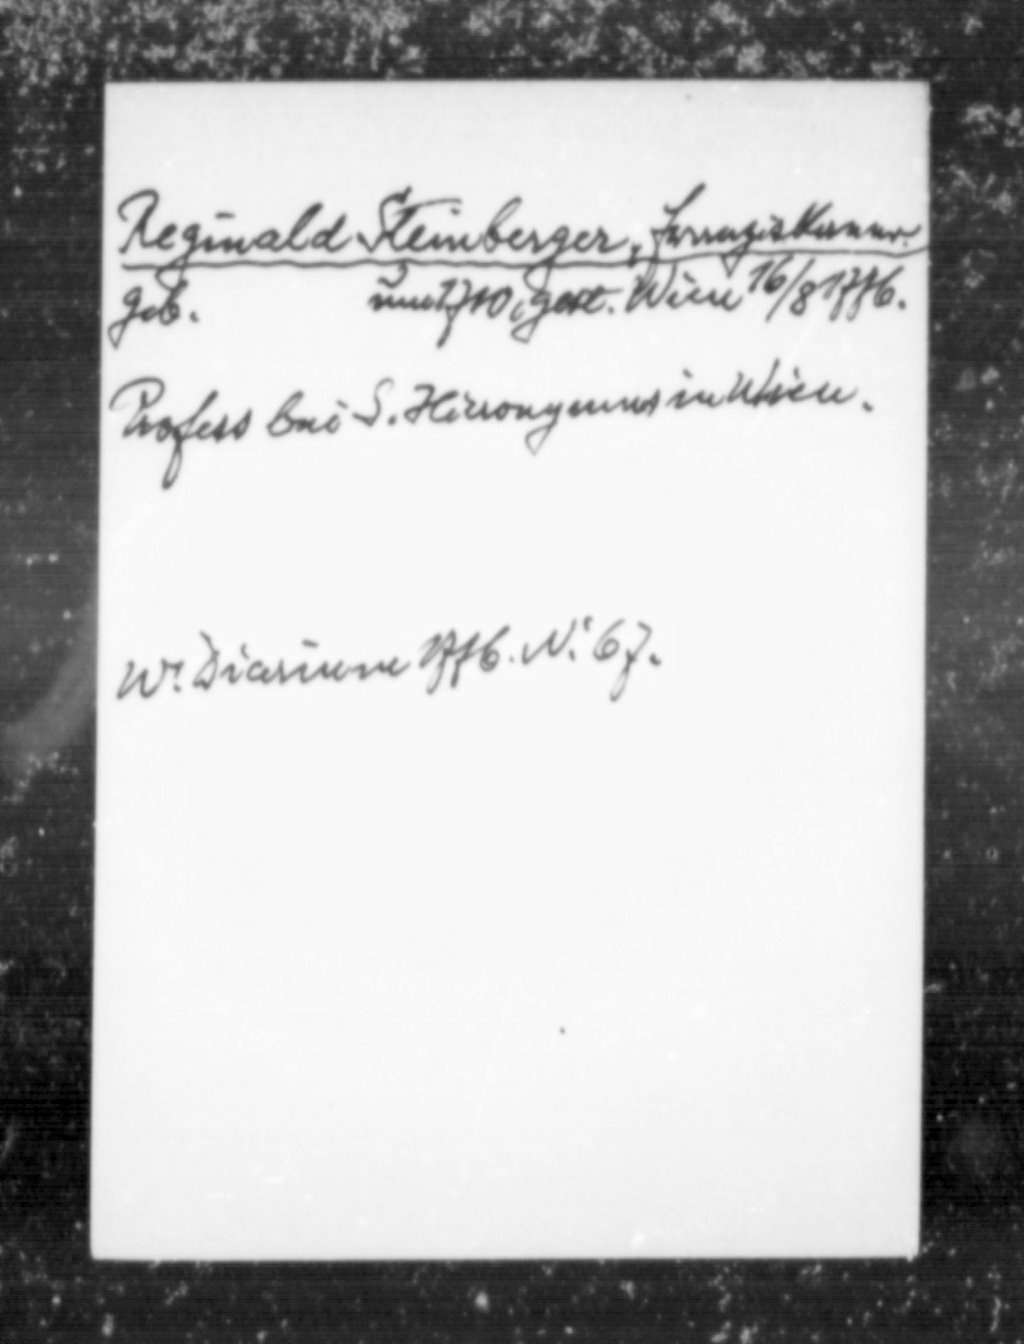 Reginald Steinberger, Franziskaner.
geb. um 1710, gest. Wien 16/8 1776.
Profess bei S. Hieronymus in Wien.
Wr. Diarium 1776. Nr. 67.